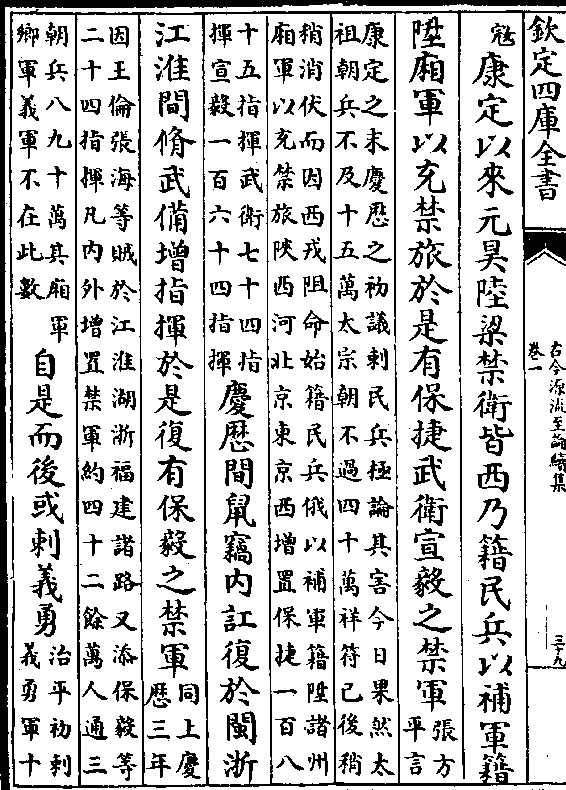 欽定四庫全書
古今源流至論續集
卷一
三十九
寇康定以來元昊陸梁禁衛皆西乃籍民兵以補軍籍
陞廂軍以充禁旅於是有保捷武衛宣毅之禁軍
張方
平言
康定之末慶厯之初議刺民兵極論其害今日果然太
祖朝兵不及十五萬太宗朝不過四十萬祥符已後稍
稍消伏而因西戎阻命始籍民兵俄以補軍籍陞諸州
廂軍以充禁旅陜西河北京東京西增置保捷一百八
十五指揮武衛七十四指
揮宣毅一百六十四指揮
慶厯間鼠竊內訌復於閩浙
江淮間脩武備增指揮於是復有保毅之禁軍
同上慶
厯三年
因王倫張海等賊於江淮湖浙福建諸路又添保毅等
二十四指揮凡內外增置禁軍約四十二餘萬人通三
朝兵八九十萬其廂軍
鄉軍義軍不在此數
自是而後或刺義勇
治平初刺
義勇軍十